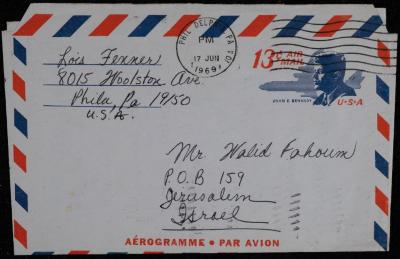 Lois Fenner
8015 Woolston Ave.
Phila, Pa 19150
U.S.A.
PHILADELPHIA, PA
PM
17 JUN
1969
13¢ AIR
MAIL
JOHN F. KENNEDY
U·S·A
Mr. Walid Fahoum
P.O.B 159
Jerusalem
Israel
AÉROGRAMME • PAR AVION